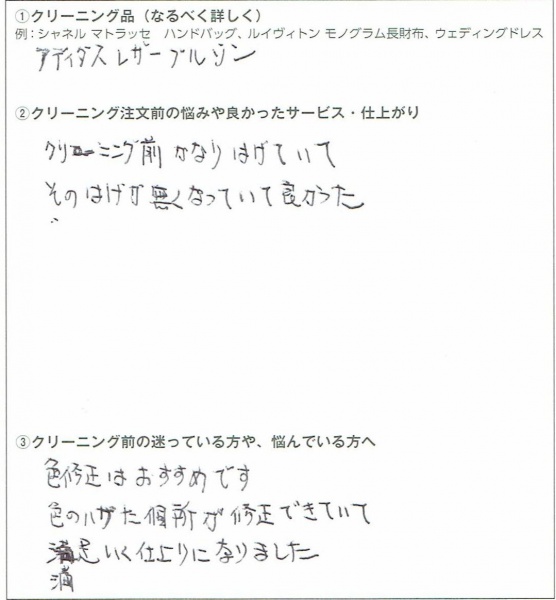 ①クリーニング品（なるべく詳しく）
例：シャネル マトラッセ　ハンドバッグ、ルイヴィトン モノグラム長財布、ウェディングドレス
アディダス レザーブルゾン
②クリーニング注文前の悩みや良かったサービス・仕上がり
クリーニング前かなりはげていて
そのはげが無くなっていて良かった
③クリーニング前の迷っている方や、悩んでいる方へ
色修正はおすすめです
色のハゲた個所が修正できていて
満足いく仕上りになりました
満